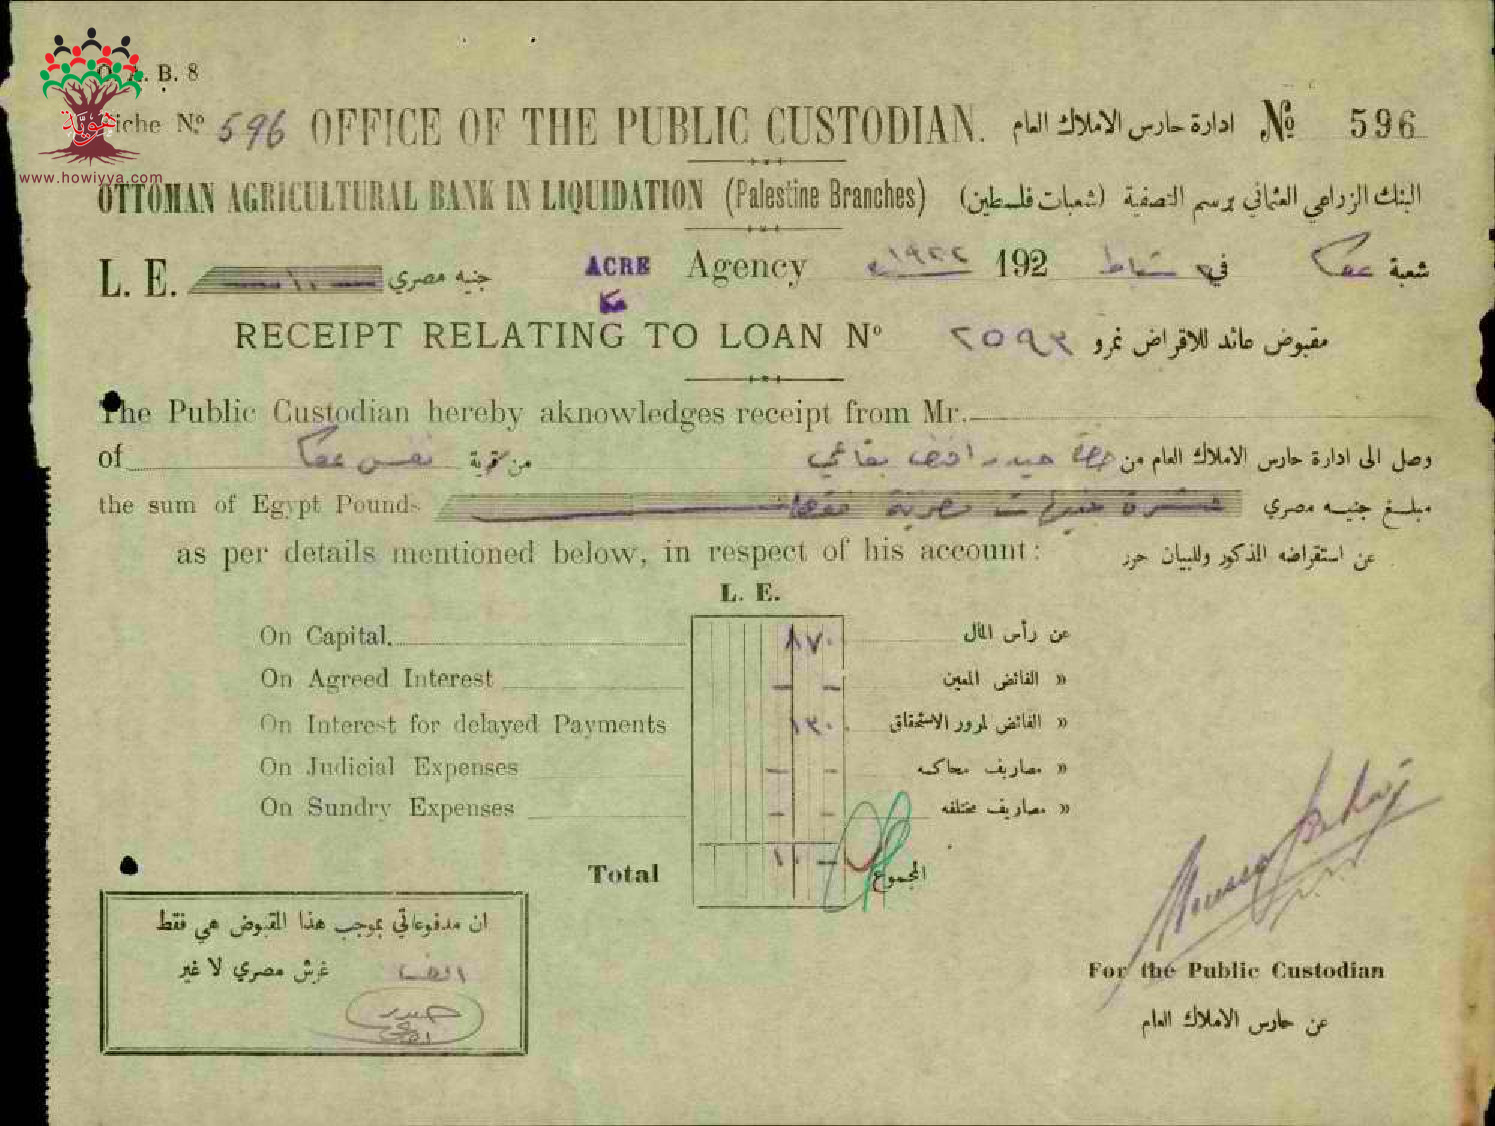 O. A. B. 8
Fiche Nº 596 OFFICE OF THE PUBLIC CUSTODIAN. ادارة حارس الاملاك العام Nº 596
هوية
www.howiyya.com
OTTOMAN AGRICULTURAL BANK IN LIQUIDATION (Palestine Branches) البنك الزراعي العثماني برسم التصفية (شعبات فلسطين)
L. E. ١٠ جنيه مصري ACRE Agency ١٩٢٢ 192 في شباط شعبة عكا
عكا
RECEIPT RELATING TO LOAN Nº ٢٥٩٣ مقبوض عائد للاقراض نمرو
The Public Custodian hereby aknowledges receipt from Mr.
of من قرية نفس عكا وصل الى ادارة حارس الاملاك العام من حيدر افندي بقاعي
the sum of Egypt Pounds عشرة جنيهات مصرية فقط مبلغ جنيه مصري
as per details mentioned below, in respect of his account: عن استقراضه المذكور وللبيان حرر
L. E.
On Capital. ٨٧٠ عن رأس المال
On Agreed Interest — — » الفائض المعين
On Interest for delayed Payments ١٣٠ » الفائض لمرور الاستحقاق
On Judicial Expenses — — » مصاريف محاكمه
On Sundry Expenses — — » مصاريف مختلفه
Total ١٠ — المجموع
ان مدفوعاتي بموجب هذا المقبوض هي فقط
غرش مصري لا غير
حيدر
For the Public Custodian
عن حارس الاملاك العام